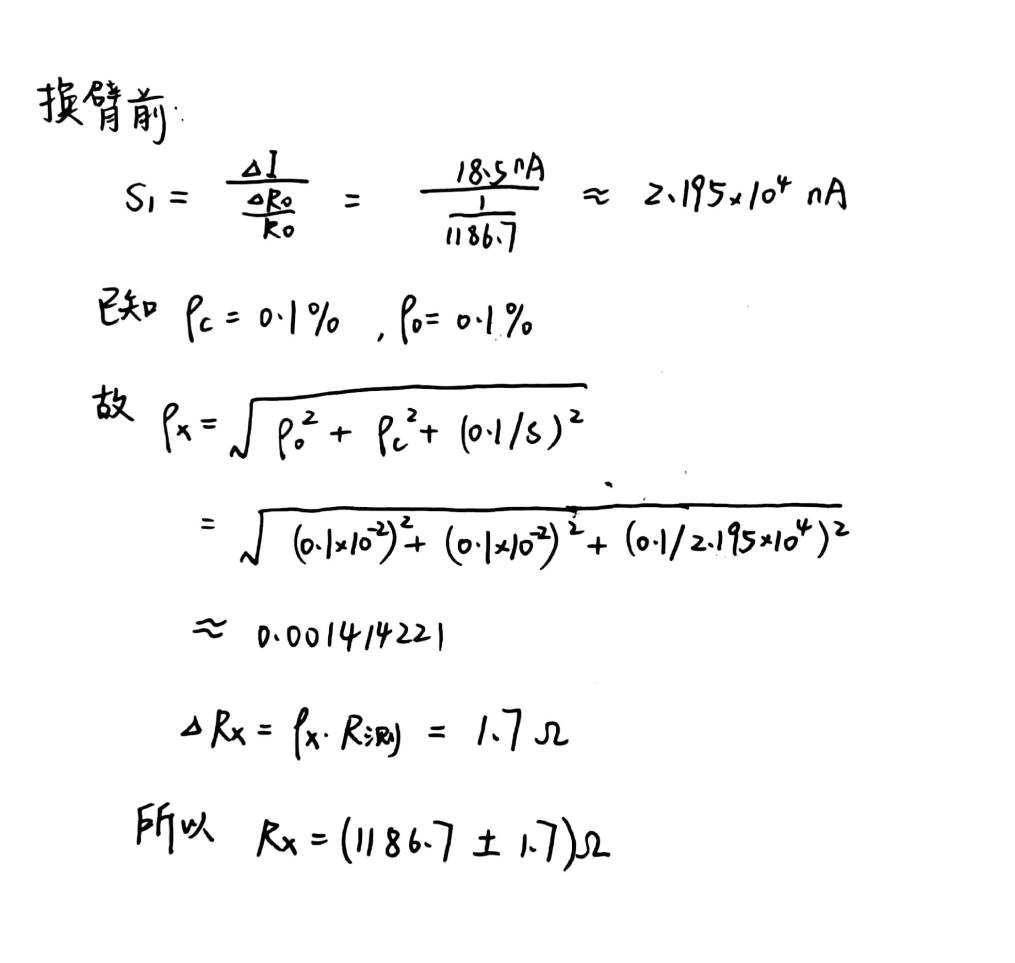 换臂前:
S₁ = ΔI / (ΔR₀/R₀) = 18.5nA / (1/1186.7) ≈ 2.195×10⁴ nA
已知 ρc = 0.1% , ρ₀ = 0.1%
故 ρx = √(ρ₀² + ρc² + (0.1/S)²)
= √((0.1×10⁻²)² + (0.1×10⁻²)² + (0.1/2.195×10⁴)²)
≈ 0.001414221
ΔRx = ρx · R测 = 1.7 Ω
所以 Rx = (1186.7 ± 1.7)Ω